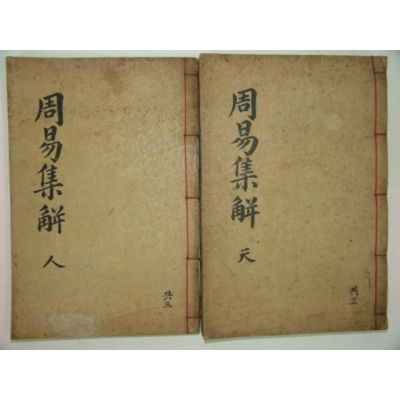 周易集解
天
共三
周易集解
人
共三